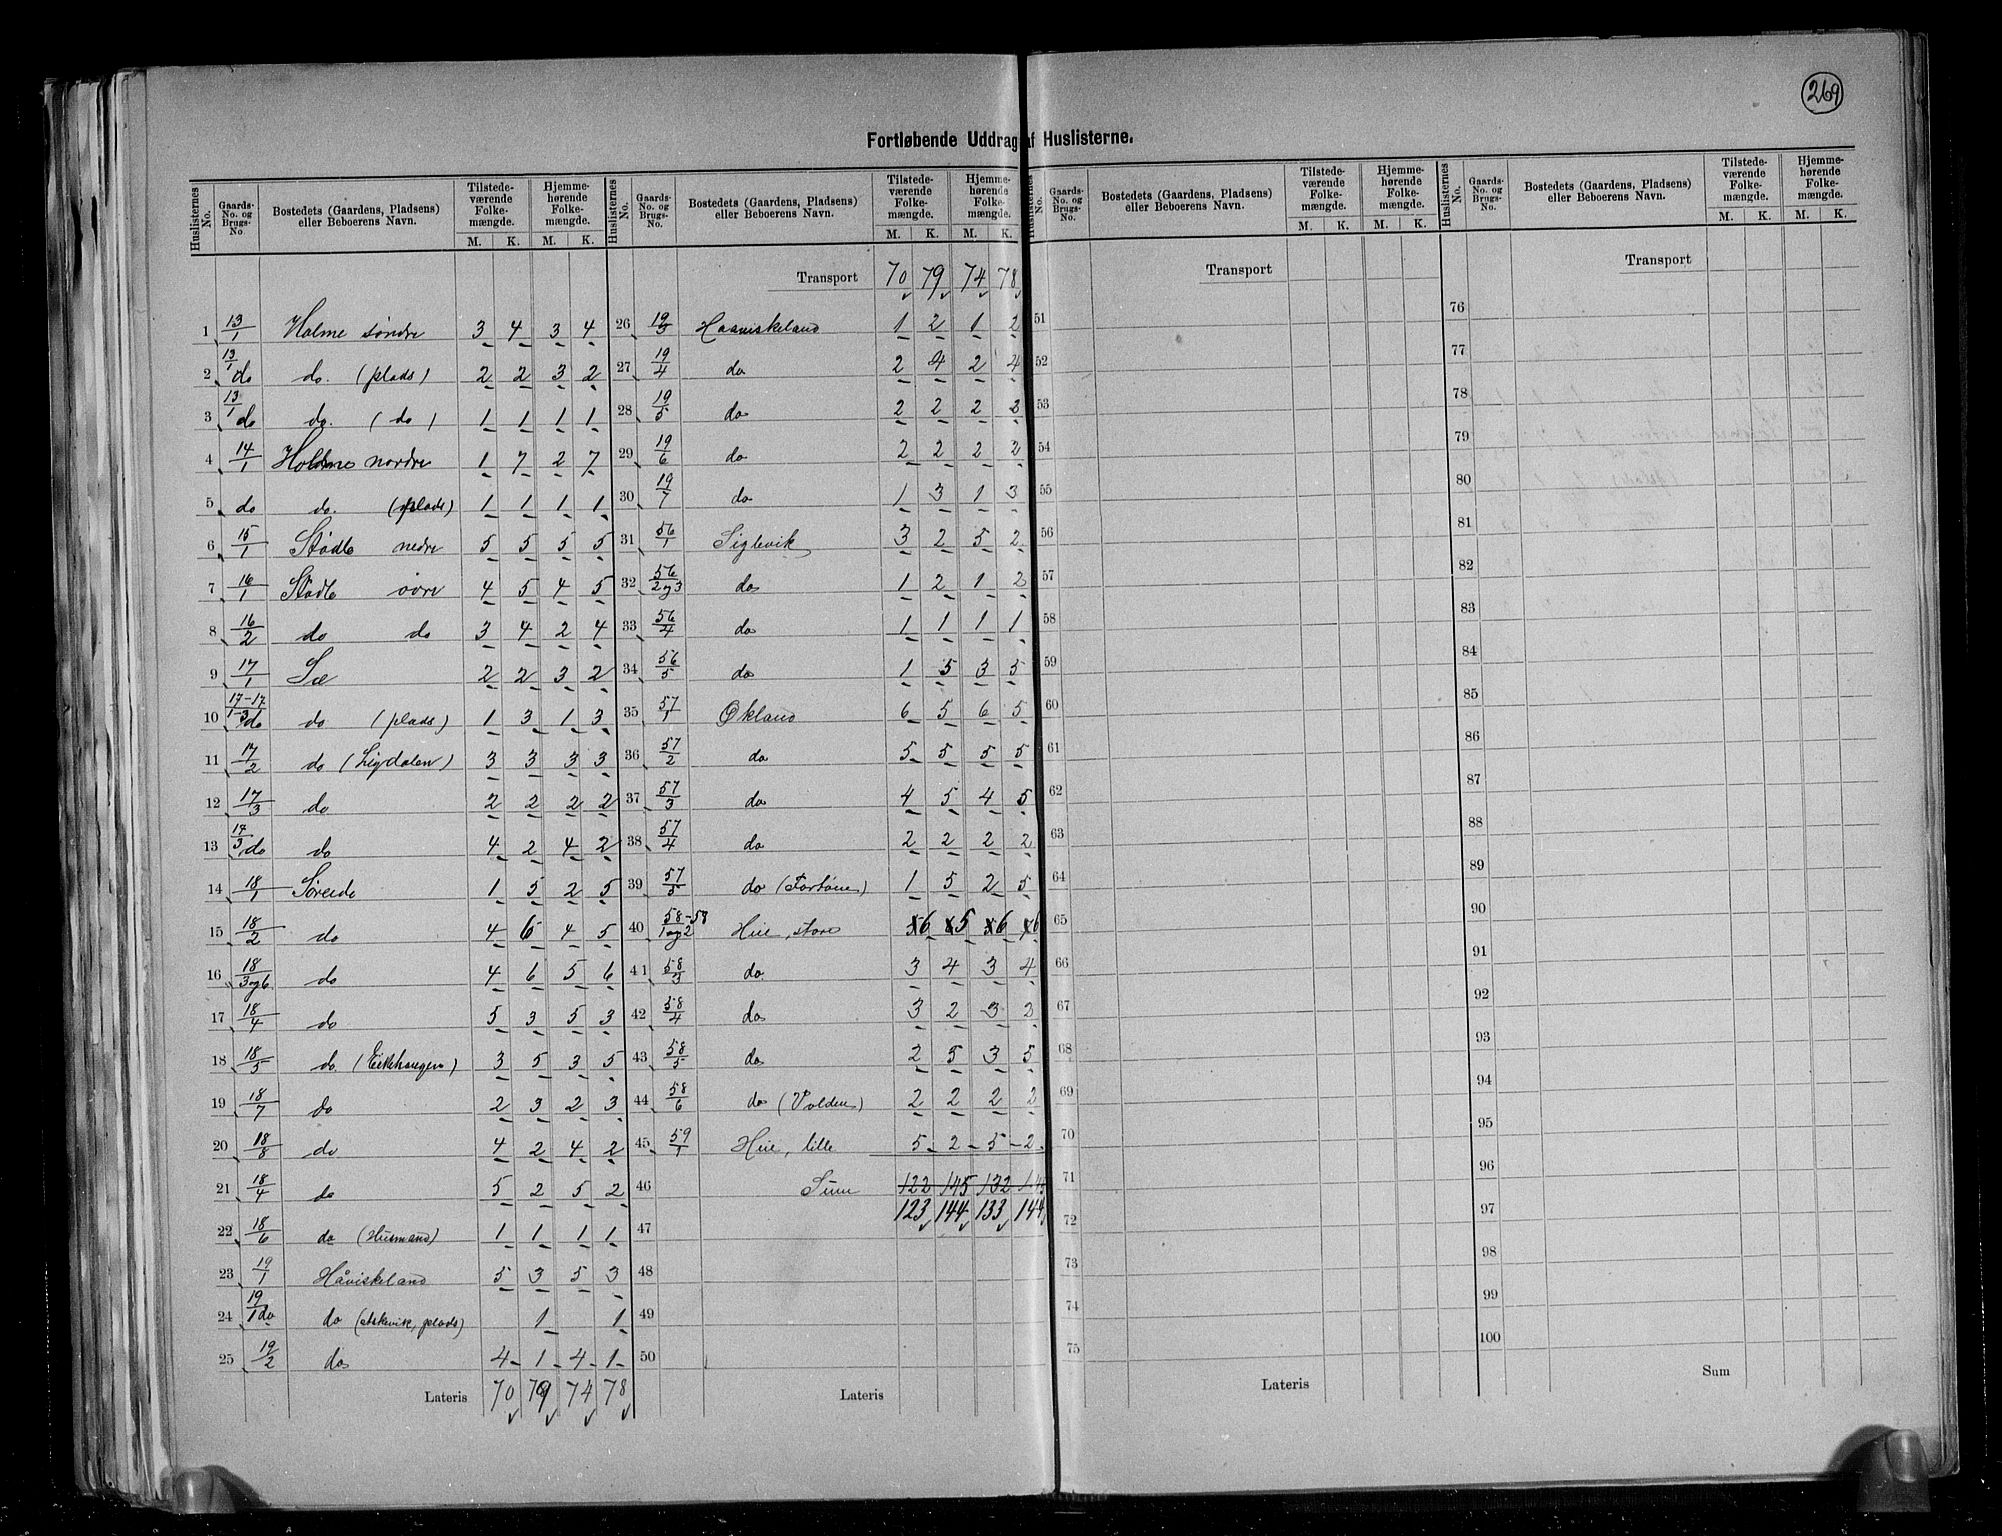 269
Fortløbende Uddrag af Huslisterne.
Huslisternes No. Gaards-No. og Brugs-No. Bostedets (Gaardens, Pladsens) eller Beboerens Navn. Tilstedeværende Folkemængde. M. K. Hjemmehørende Folkemængde. M. K.
1 13/1 Holme søndre 3 4 3 4
2 13/1 do do. (plads) 2 2 3 2
3 13/1 do do. (do) 1 1 1 1
4 14/1 Holme nordre 1 7 2 7
5 do do. (plads) 1 1 1 1
6 15/1 Stødle nedre 5 5 5 5
7 16/1 Stødle övre 4 5 4 5
8 16/2 do do 3 4 2 4
9 17/1 Sæ 2 2 3 2
10 17-17/1-3 do do (plads) 1 3 1 3
11 17/2 do (Ligdalen) 3 3 3 3
12 17/3 do 2 2 2 2
13 17/3 do do 4 2 4 2
14 18/1 Søreide 1 5 2 5
15 18/2 do 4 6 4 5
16 18/3og6 do 4 6 5 6
17 18/4 do 5 3 5 3
18 18/5 do. (Eikehaugen) 3 5 3 5
19 18/7 do 2 3 2 3
20 18/8 do 4 2 4 2
21 18/4 do 5 2 5 2
22 18/6 do (Husmand) 1 1 1 1
23 19/1 Håviskeland 5 3 5 3
24 19/1 do do (Askevik, plads) 1 1
25 19/2 do 4 1 4 1
Lateris 70 79 74 78
Huslisternes No. Gaards-No. og Brugs-No. Bostedets (Gaardens, Pladsens) eller Beboerens Navn. Tilstedeværende Folkemængde. M. K. Hjemmehørende Folkemængde. M. K.
Transport 70 79 74 78
26 19/3 Haaviskeland 1 2 1 2
27 19/4 do 2 4 2 4
28 19/5 do 2 2 2 2
29 19/6 do 2 2 2 2
30 19/7 do 1 3 1 3
31 56/1 Siglevik 3 2 5 2
32 56/2og3 do 1 2 1 2
33 56/4 do 1 1 1 1
34 56/5 do 1 5 3 5
35 57/1 Økland 6 5 6 5
36 57/2 do 5 5 5 5
37 57/3 do 4 5 4 5
38 57/4 do 2 2 2 2
39 57/5 do (Fortøene) 1 5 2 5
40 58-58/1og2 Hue, store 6 5 6 6
41 58/3 do 3 4 3 4
42 58/4 do 3 2 3 2
43 58/5 do 2 5 3 5
44 58/6 do (Volden) 2 2 2 2
45 59/1 Hue, lille 5 2 5 2
46 Sum 122 145 132 145
123 144 133 144
47
48
49
50
Lateris
Huslisternes No. Gaards-No. og Brugs-No. Bostedets (Gaardens, Pladsens) eller Beboerens Navn. Tilstedeværende Folkemængde. M. K. Hjemmehørende Folkemængde. M. K.
Transport
51
52
53
54
55
56
57
58
59
60
61
62
63
64
65
66
67
68
69
70
71
72
73
74
75
Lateris
Huslisternes No. Gaards-No. og Brugs-No. Bostedets (Gaardens, Pladsens) eller Beboerens Navn. Tilstedeværende Folkemængde. M. K. Hjemmehørende Folkemængde. M. K.
Transport
76
77
78
79
80
81
82
83
84
85
86
87
88
89
90
91
92
93
94
95
96
97
98
99
100
Sum